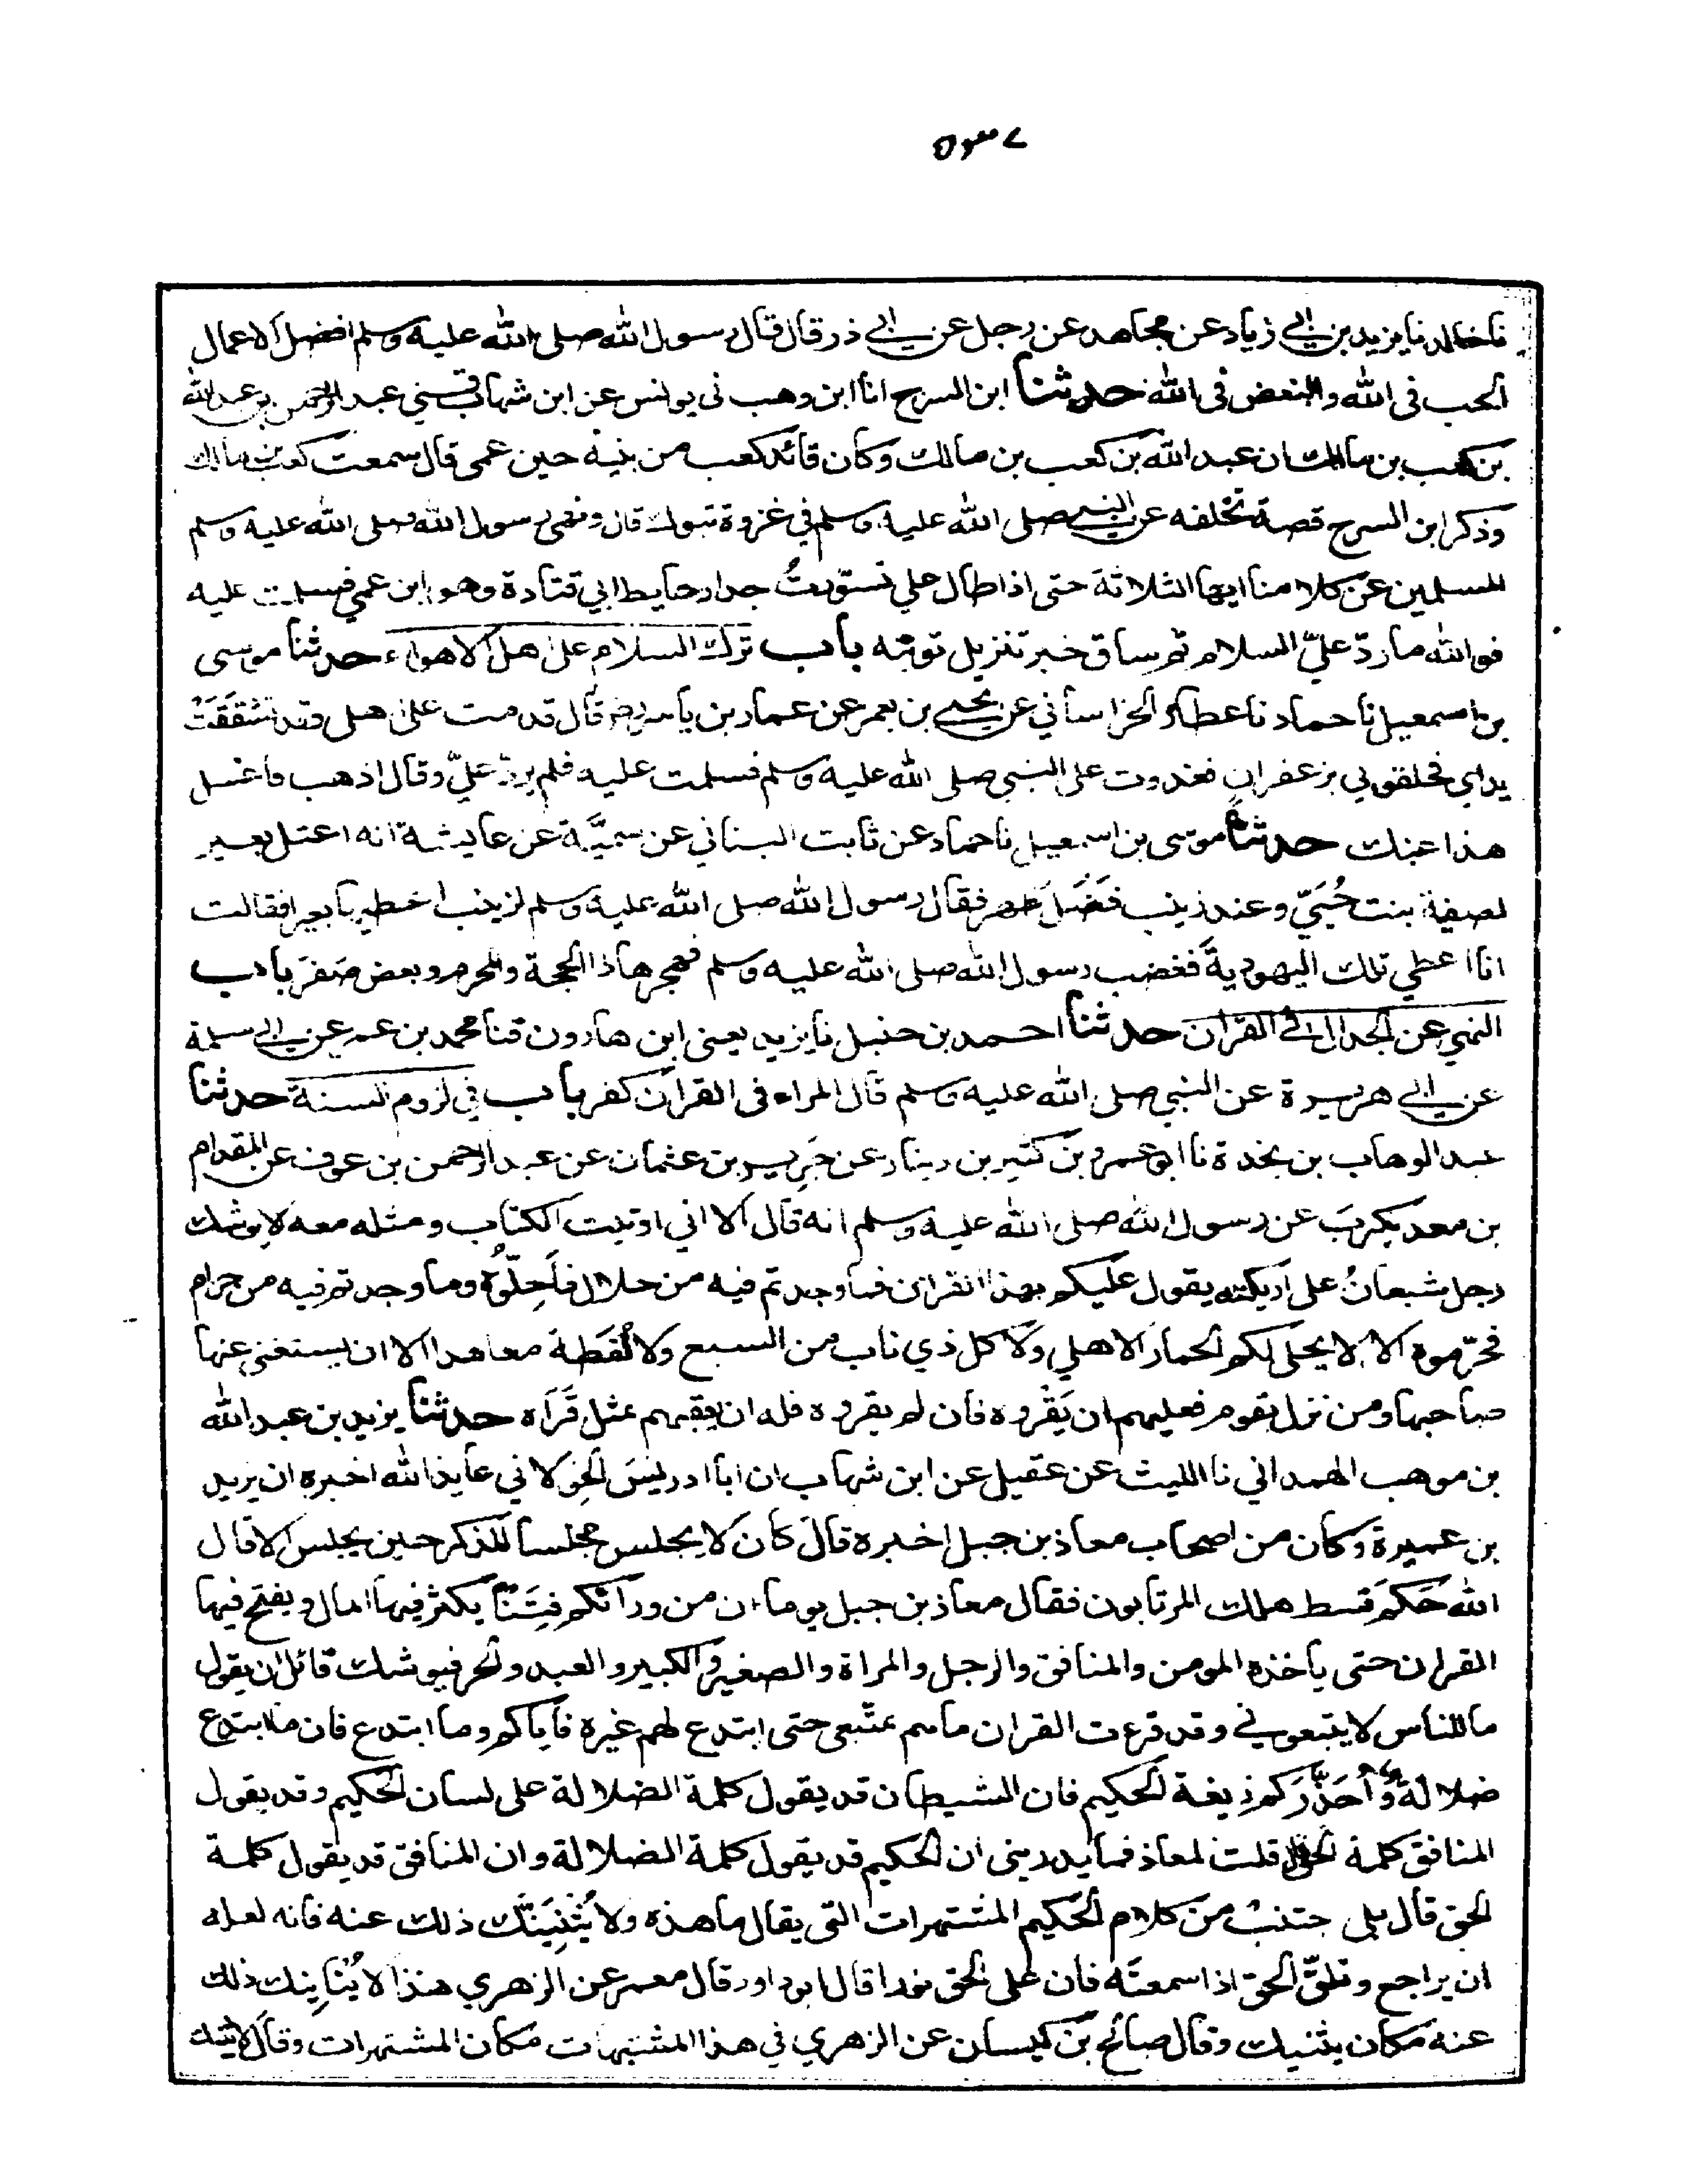 ٥٣٧
نا خالد نا يزيد بن ابي زياد عن مجاهد عن رجل عن ابي ذر قال قال رسول الله صلى الله عليه وسلم افضل الاعمال
الحب في الله والبغض في الله حدثنا ابن السرح انا ابن وهب ني يونس عن ابن شهاب قني عبد الرحمن بن عبد الله
بن كعب بن مالك ان عبد الله بن كعب بن مالك وكان قائد كعب من بنيه حين عمى قال سمعت كعب بن مالك
وذكر ابن السرح قصة تخلفه عن النبي صلى الله عليه وسلم في غزوة تبوك قال ونهى رسول الله صلى الله عليه وسلم
المسلمين عن كلامنا ايها الثلاثة حتى اذا طال علي تسوّرتُ جدار حايط ابي قتادة وهو ابن عمي فسلمت عليه
فوالله ما ردّ عليّ السلام ثم ساق خبر تنزيل توبته باب ترك السلام على اهل الاهواء حدثنا موسى
بن اسمعيل نا حماد نا عطاء الخراساني عن يحيى بن يعمر عن عمار بن ياسر قال قدمت على اهلي وقد تشققت
يداي فخلقوني بزعفران فغدوت على النبي صلى الله عليه وسلم فسلمت عليه فلم يردّ عليّ وقال اذهب فاغسل
هذا عنك حدثنا موسى بن اسمعيل نا حماد عن ثابت البناني عن سميَّة عن عايشة انه اعتل بعير
لصفية بنت حُيَيّ وعند زينب فَضَلَ ظهر فقال رسول الله صلى الله عليه وسلم لزينب اعطيها بعيرا فقالت
انا اعطي تلك اليهوديةَ فغضب رسول الله صلى الله عليه وسلم فهجرها ذا الحجة والمحرم وبعض صَفَر باب
النهي عن الجدال في القرآن حدثنا احمد بن حنبل نا يزيد يعني ابن هارون قنا محمد بن عمر عن ابي سلمة
عن ابي هريرة عن النبي صلى الله عليه وسلم قال المراء في القرآن كفر باب في لزوم السنة حدثنا
عبد الوهاب بن نجدة نا ابو عمرو بن كثير بن دينار عن جَرير بن عثمان عن عبد الرحمن بن عوف عن المقدام
بن معد يكربَ عن رسول الله صلى الله عليه وسلم انه قال الا اني اوتيت الكتاب ومثله معه لا يوشك
رجل شبعانُ على اريكته يقول عليكم بهذا القران فما وجدتم فيه من حلال فأَحِلّوُه وما وجدتم فيه من حرام
فحرّموه الا لا يحل لكم الحمار الاهلي ولا كل ذي ناب من السبع ولا لُقَطة معاهد الا ان يستغني عنها
صاحبها ومن نزل بقوم فعليهم ان يَقْروه فان لم يقروه فله ان يعقبهم بمثل قَرَاه حدثنا يزيد بن عبد الله
بن موهب الهمداني نا الليث عن عقيل عن ابن شهاب ان ابا ادريسَ الخولاني عايذ الله اخبره ان يزيد
بن عميرة وكان من اصحاب معاذ بن جبل اخبره قال كان لا يجلس مجلسا للذكر حين يجلس الا قال
الله حَكَم قسط هلك المرتابون فقال معاذ بن جبل يوما ان من ورائكم فِتَنًا يكثر فيها المال ويفتح فيها
القران حتى ياخذه المومن والمنافق والرجل والمراة والصغير والكبير والعبد والحر فيوشك قائل ان يقول
ما للناس لا يتبعوني وقد قرءت القران ما هم بمتّبعي حتى ابتدع لهم غيره فاياكم وما ابتدع فان ما ابتدع
ضلالةٌ وأُحَذّرَكم زيغة الحكيم فان الشيطان قد يقول كلمة الضلالة على لسان الحكيم وقد يقول
المنافق كلمة الحق قال قلت لمعاذ فما يدريني ان الحكيم قد يقول كلمة الضلالة وان المنافق قد يقول كلمة
الحق قال بلى جتنب من كلام الحكيم المشتهرات التي يقال ما هذه ولا يُثْنِيَنَّك ذلك عنه فانه لعله
ان يراجع وتلقّ الحق اذا سمعتَه فان على الحق نورا قال ابو داود قال معمر عن الزهري هذا لا يُنايِنك ذلك
عنه مكان يثنيك وقال صالح بن كيسان عن الزهري في هذا المشتبهات مكان المشتهرات وقال لا يثنيك